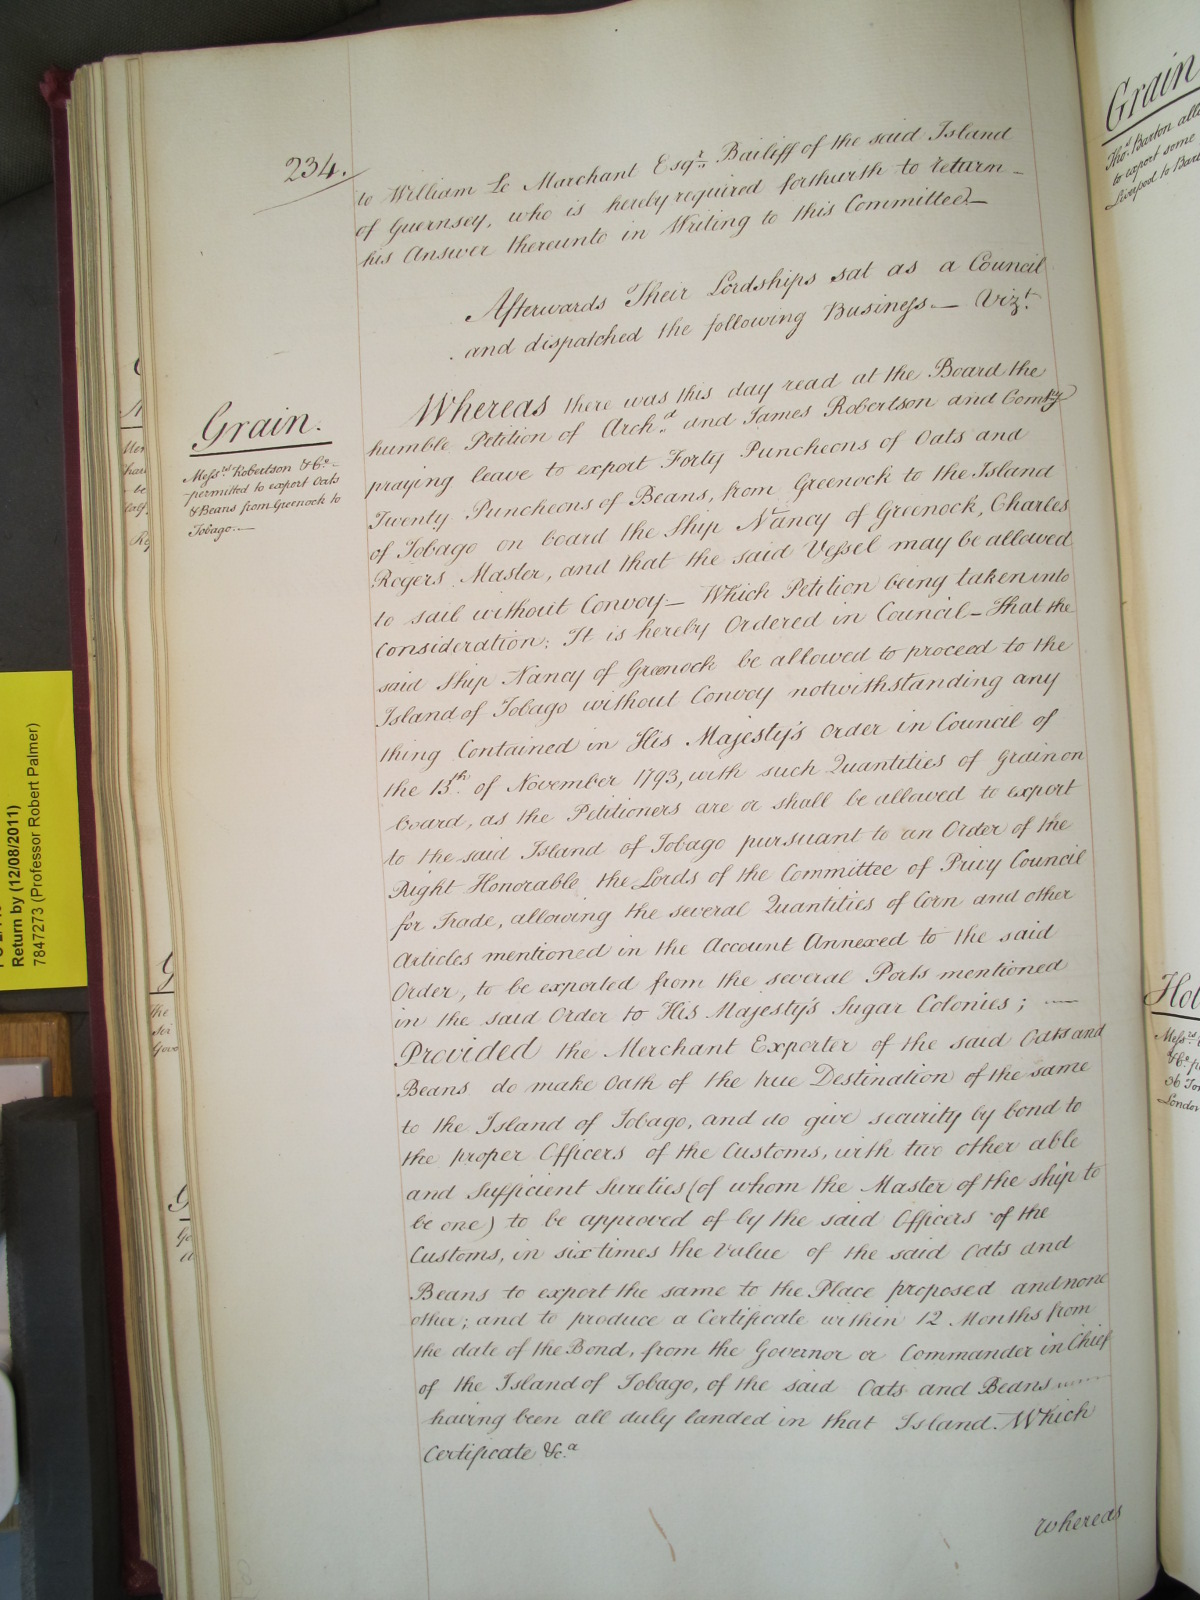 234.
to William Le Marchant Esqr. Bailiff of the said Island
of Guernsey, who is hereby required forthwith to return
his Answer thereunto in Writing to this Committee.—
Afterwards Their Lordships sat as a Council
and dispatched the following Business.— Vizt.
Grain.
Messrs. Robertson & Co.
permitted to export Oats
& Beans from Greenock to
Tobago.—
Whereas there was this day read at the Board the
humble Petition of Archd. and James Robertson and Compy
praying leave to export Forty Puncheons of Oats and
Twenty Puncheons of Beans, from Greenock to the Island
of Tobago on board the Ship Nancy of Greenock, Charles
Rogers Master, and that the said Vessel may be allowed
to sail without Convoy— Which Petition being taken into
Consideration: It is hereby Ordered in Council— That the
said Ship Nancy of Greenock be allowed to proceed to the
Island of Tobago without Convoy notwithstanding any
thing Contained in His Majesty's Order in Council of
the 13th. of November 1793, with such Quantities of Grain on
board, as the Petitioners are or shall be allowed to export
to the said Island of Tobago pursuant to an Order of the
Right Honorable the Lords of the Committee of Privy Council
for Trade, allowing the several Quantities of Corn and other
Articles mentioned in the Account Annexed to the said
Order, to be exported from the several Ports mentioned
in the said Order to His Majesty's Sugar Colonies; —
Provided the Merchant Exporter of the said Oats and
Beans do make Oath of the true Destination of the same
to the Island of Tobago, and do give security by bond to
the proper Officers of the Customs, with two other able
and Sufficient Sureties (of whom the Master of the ship to
be one) to be approved of by the said Officers of the
Customs, in six times the Value of the said Oats and
Beans to export the same to the Place proposed and none
other; and to produce a Certificate within 12 Months from
the date of the Bond, from the Governor or Commander in Chief
of the Island of Tobago, of the said Oats and Beans
having been all duly landed in that Island. Which
Certificate &c.a
whereas
Return by (12/08/2011)
7847273 (Professor Robert Palmer)
Grain
Thos. Barton
to export some
Liverpool to
London